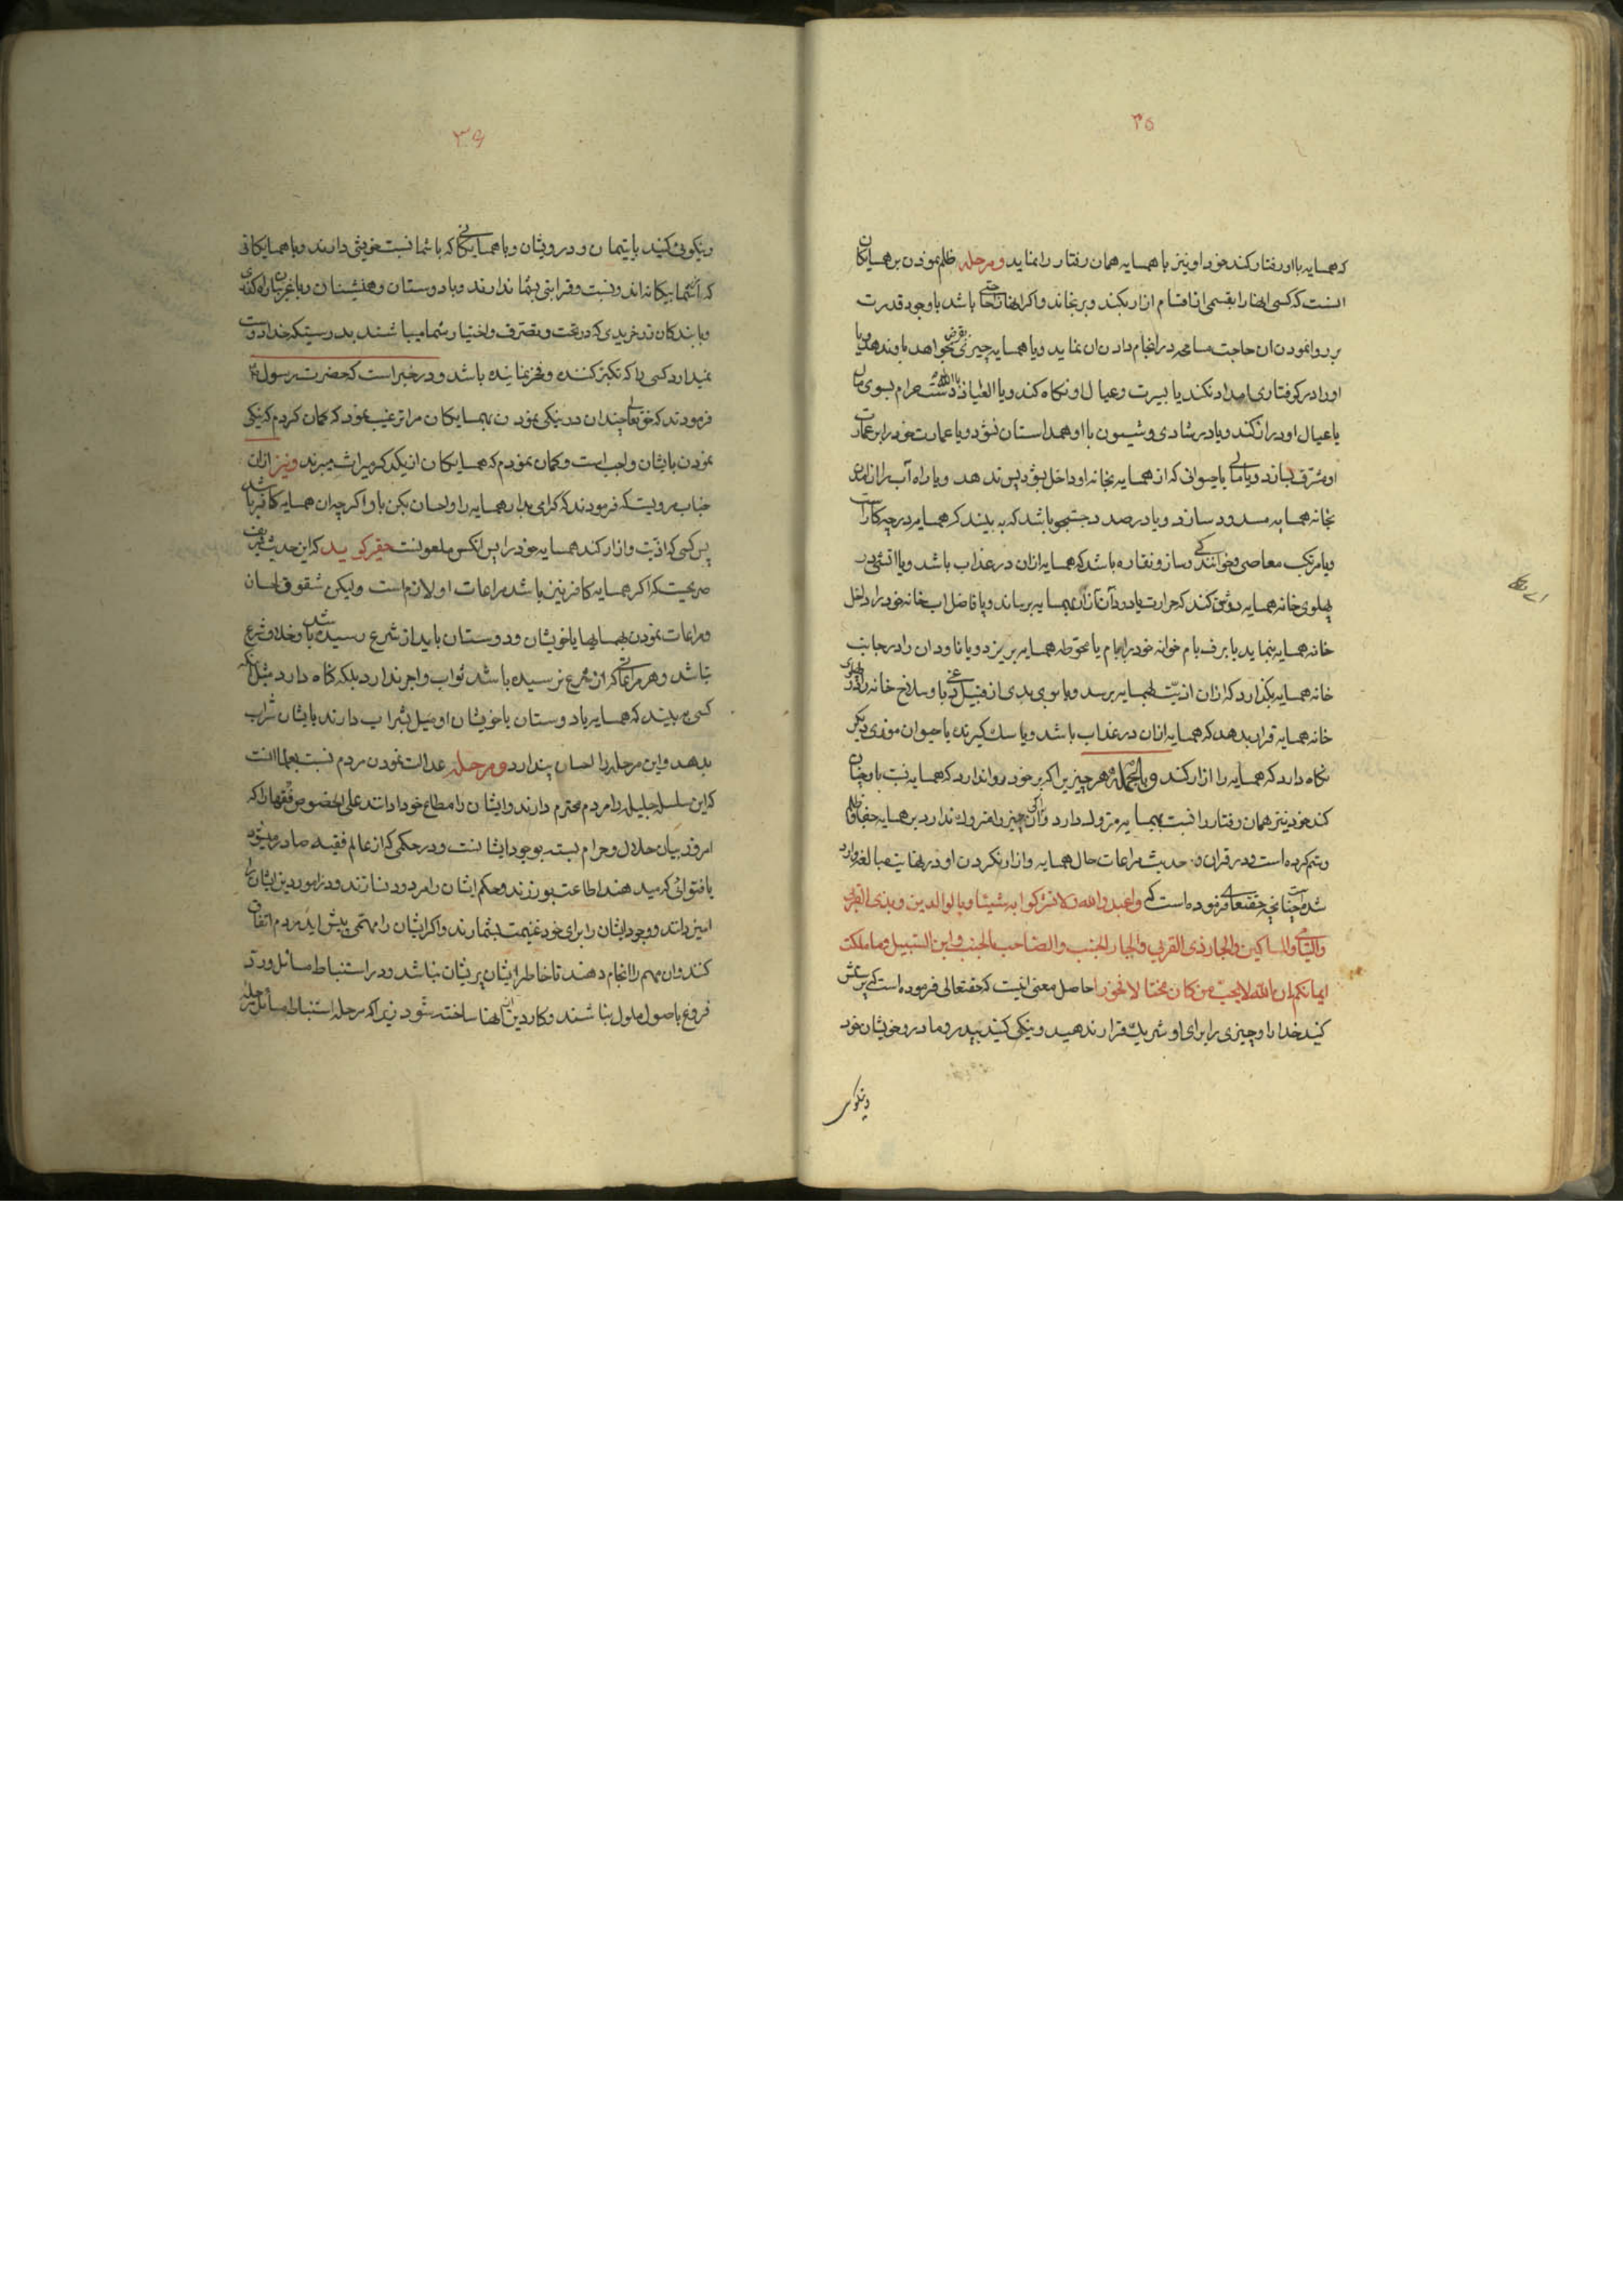 ۳۵
که همسایه با او رفتار کند خود او نیز با همسایه همان رفتار را نماید و مرحله ظلم نمودن بر همسایکان
انست که کسی انها را بقسمی از اقسام ازار بکند و برنجاند و اکر انها را حاجتی باشد با وجود قدرت
بر روا نمودن ان حاجت مسامحه در انجام دادن ان نماید و یا همسایه چیزی بقرض بخواهد باو ندهد و یا
او را در کرفتاری امداد نکند یا بسیرت و عیال او نکاه کند و یا العیاذ بالله دست حرام بسوی مال
یا عیال او دراز کند و یا در شادی و شیون با او همداستان نشود و یا عمارت خود را بر عمارت
او مشرف بسازد و یا مالی یا حیوانی که از همسایه بخانه او داخل بشود پس ندهد و یا راه آب را از امدن
بخانه همسایه مسدود سازد و یا در صدد جستجو باشد که به بیند که همسایه در چه کار است
و یا مرتکب معاصی و خوانندکی و ساز و نقاره باشد که همسایه از ان در عذاب باشد و یا اتشی در
پهلوی خانه همسایه روشن کند که حرارت یا دود آن ازار بهمسایه برساند و یا فاضل اب خانه خود را داخل
خانه همسایه بنماید یا برف بام خوانه خود را ببام یا بمحوطه همسایه بریزد و یا ناودان را در جانب
خانه همسایه بکذارد که از ان اذیت بهمسایه برسد و یا بوی بدی از قبیل دباغی و سلاخ خانه را در پهلوی
خانه همسایه قرار بدهد که همسایه از ان در عذاب باشد و یا سک کیرنده یا حیوان موذی دیکر
نکاه دارد که همسایه را ازار کند و بالجمله هر چیز یرا که بر خود روا ندارد که همسایه نسبت باو چنان
کند خود نیز همان رفتار را نسبت بهمسایه متروک دارد و اکر ان چیز را متروک ندارد بر همسایه جفا و ظلم
و ستم کرده است و در قران و حدیث مراعات حال همسایه و ازار نکردن او در نهایت مبالغه وارد
شده است چنانچه حقتعالی فرموده است که واعبدوا الله ولا تشرکوا به شیئا وبالوالدین وبذی القربی
والیتامی والمساکین والجار ذی القربی والجار الجنب والصاحب بالجنب وابن السبیل وما ملکت
ایمانکم ان الله لا یحب من کان مختالا فخورا حاصل معنی اینست که حقتعالی فرموده است که پرستش
کنید خدا را و چیزی را برای او شریک قرار ندهید و نیکی کنید بپدر و مادر و خویشان خود
و نیکوئی
۳۶
و نیکوئی کنید با یتیمان و درویشان و با همسایکانی که با شما نسبت خویشی دارند و با همسایکانی
که از شما بیکانه اند و نسبت و قرابتی بشما ندارند و با دوستان و همنشینان و با غریبان راه کذری
و با بندکان زرخریدی که در تحت و تصرف و اختیار شما میباشند بدرستیکه خدا دوست
نمیدارد کسی را که تکبر کننده و فخر نماینده باشد و در خبر است که حضرت رسول
فرمودند که حقتعالی چندان در نیکی نمودن بهمسایکان مرا ترغیب نمود که کمان کردم که نیکی
نمودن بایشان واجب است و کمان نمودم که همسایکان از یکدیکر میراث میبرند و نیز از ان
جناب مرویست که فرمودند که کرامی بدار همسایه را و احسان بکن باو اکر چه ان همسایه کافر باشد
پس کسی که اذیت و ازار کند همسایه خود را پس انکس ملعونست حقیر کوید که این حدیث شریف
صریحست که اکر همسایه کافر نیز باشد مراعات او لازم است ولیکن شقوق احسان
و مراعات نمودن بهمسایها یا خویشان و دوستان باید از شرع رسیده باشد و خلاف شرع
نباشد و هر مراعاتی که از شرع نرسیده باشد ثواب و اجر ندارد بلکه کناه دارد مثل انکه
کسی به بیند که همسایه یا دوستان یا خویشان او میل بشراب دارند بایشان شراب
بدهد و این مرحله را احسان پندارد و مرحله عدالت نمودن مردم نسبت بعلما انست
که این سلسله جلیله را مردم محترم دارند و ایشان را مطاع خود دانند علی الخصوص فقها را که
امروز بیان حلال و حرام بسته بوجود ایشانست و در حکمی که از عالم فقیه صادر میشود
یا فتوائی که میدهند اطاعت بورزند و حکم ایشان را مردود نسازند و در امور دین ایشان را
امین دانند و وجود ایشان را برای خود غنیمت بشمارند و اکر ایشان را مهمی پیش اید مردم اتفاق
کنند و ان مهم را انجام دهند تا خاطر ایشان پریشان نباشد و در استنباط مسائل و رد
فروع باصول ملول نباشند و کار دین انها ساخته شود زیرا که مرحله استنباط مسائل